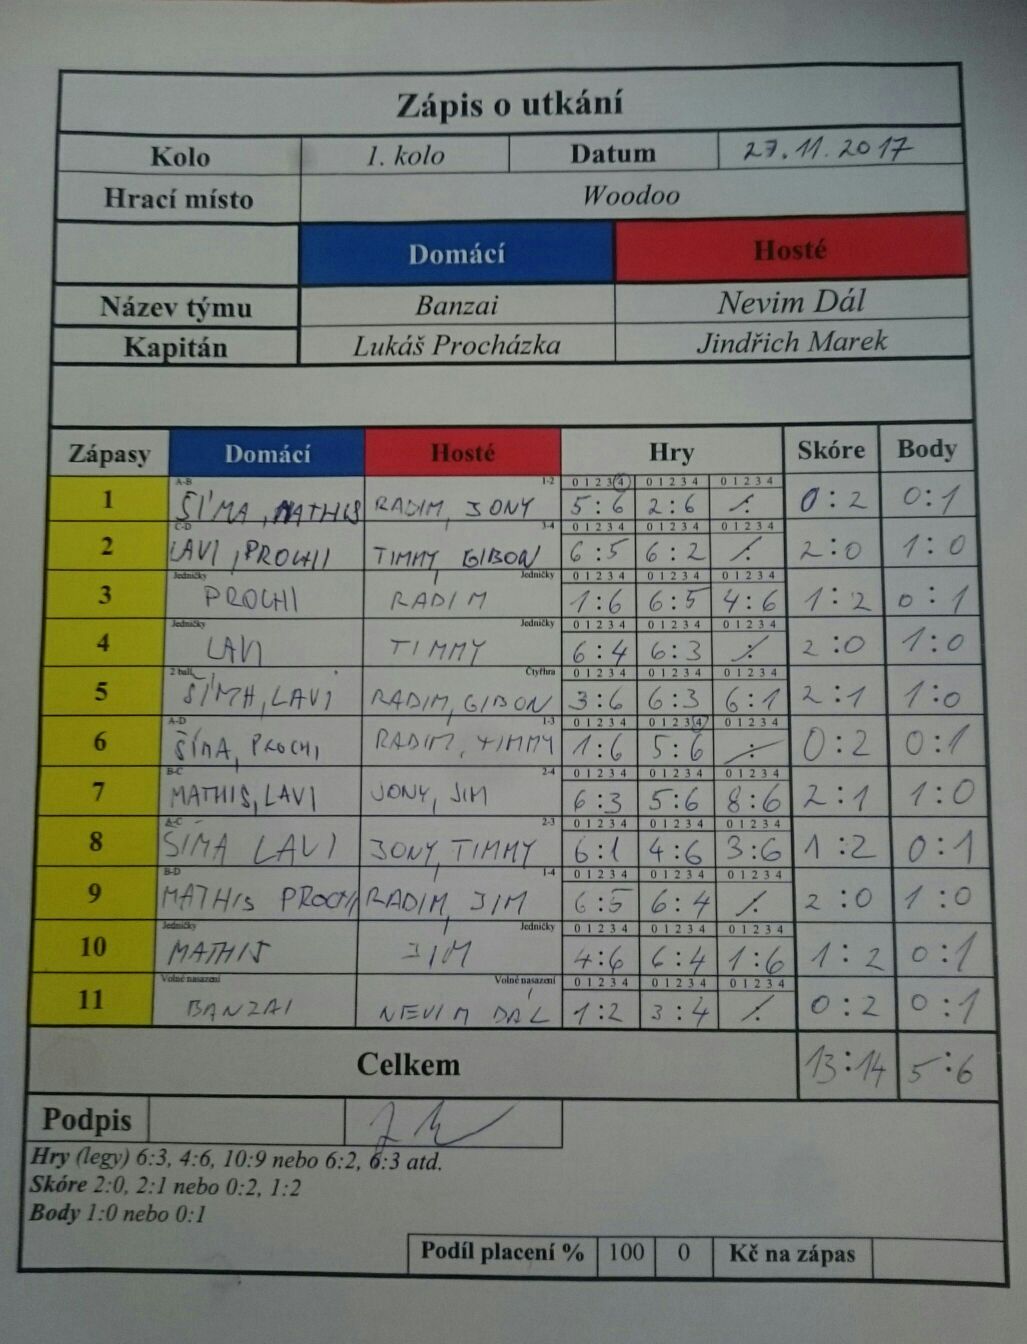 Zápis o utkání
Kolo 1. kolo Datum 27.11.2017
Hrací místo Woodoo
Domácí Hosté
Název týmu Banzai Nevim Dál
Kapitán Lukáš Procházka Jindřich Marek
Zápasy Domácí Hosté Hry Skóre Body
A-B 1-2 0 1 2 3 4 0 1 2 3 4 0 1 2 3 4
1 ŠÍMA, MATHIS RADIM, JONY 5:6 2:6 : 0:2 0:1
C-D 3-4 0 1 2 3 4 0 1 2 3 4 0 1 2 3 4
2 LAVI, PROCHI TIMMY, GIBON 6:5 6:2 : 2:0 1:0
Jedničky Jedničky 0 1 2 3 4 0 1 2 3 4 0 1 2 3 4
3 PROCHI RADIM 1:6 6:5 4:6 1:2 0:1
Jedničky Jedničky 0 1 2 3 4 0 1 2 3 4 0 1 2 3 4
4 LAVI TIMMY 6:4 6:3 : 2:0 1:0
2 bally Čtyřhra 0 1 2 3 4 0 1 2 3 4 0 1 2 3 4
5 ŠÍMA, LAVI RADIM, GIBON 3:6 6:3 6:1 2:1 1:0
A-D 1-3 0 1 2 3 4 0 1 2 3 4 0 1 2 3 4
6 ŠÍMA, PROCHI RADIM, TIMMY 1:6 5:6 : 0:2 0:1
B-C 2-4 0 1 2 3 4 0 1 2 3 4 0 1 2 3 4
7 MATHIS, LAVI JONY, JIM 6:3 5:6 8:6 2:1 1:0
A-C 2-3 0 1 2 3 4 0 1 2 3 4 0 1 2 3 4
8 ŠÍMA LAVI JONY, TIMMY 6:1 4:6 3:6 1:2 0:1
B-D 1-4 0 1 2 3 4 0 1 2 3 4 0 1 2 3 4
9 MATHIS PROCHI RADIM, JIM 6:5 6:4 : 2:0 1:0
Jedničky Jedničky 0 1 2 3 4 0 1 2 3 4 0 1 2 3 4
10 MATHIS JIM 4:6 6:4 1:6 1:2 0:1
Volné nasazení Volné nasazení 0 1 2 3 4 0 1 2 3 4 0 1 2 3 4
11 BANZAI NEVIM DÁL 1:2 3:4 : 0:2 0:1
Celkem 13:14 5:6
Podpis
Hry (legy) 6:3, 4:6, 10:9 nebo 6:2, 6:3 atd.
Skóre 2:0, 2:1 nebo 0:2, 1:2
Body 1:0 nebo 0:1
Podíl placení % 100 0 Kč na zápas